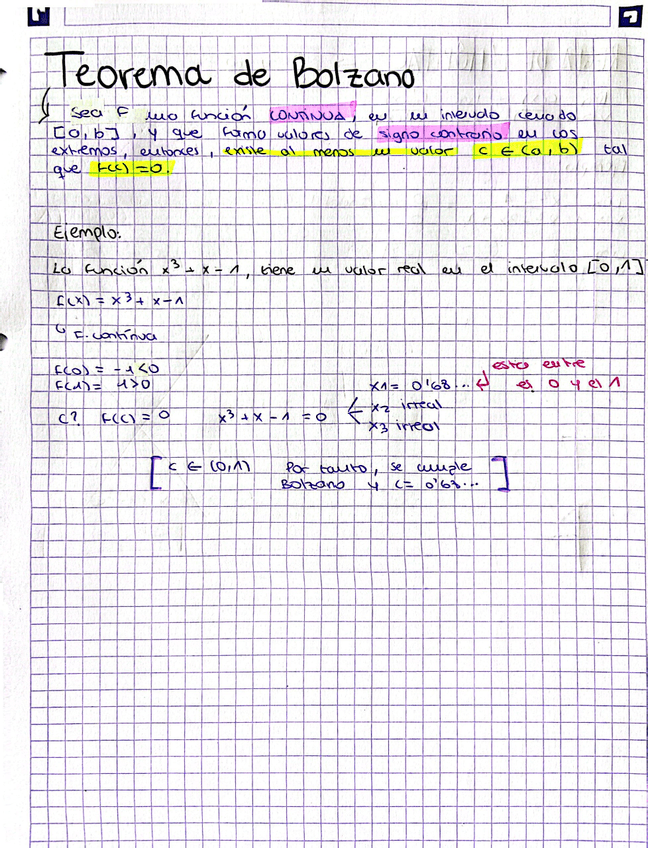 Teorema de Bolzano
Sea F una función CONTINUA, en un intervalo cerrado
[a,b], y que toma valores de signo contrario en los
extremos, entonces, existe al menos un valor c ∈ (a,b) tal
que F(c)=0.
Ejemplo:
La función x³+x-1, tiene un valor real en el intervalo [0,1]
f(x) = x³+x-1
↳ F. contínua
F(0) = -1<0
F(1) = 1>0
esta entre
x1 = 0'68... ↲ el 0 y el 1
C? F(c) = 0 x³+x-1 = 0 < x2 irreal
x3 irreal
[ c ∈ (0,1) Por tanto, se cumple
Bolzano y c= 0'68... ]